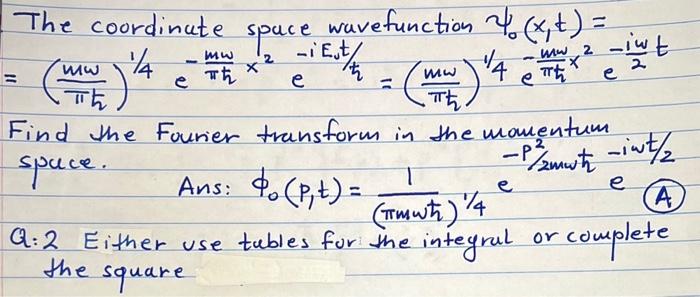 The coordinate space wavefunction ψ₀(x,t) =
= (mω/πħ)^1/4 e^(-mω/πħ x²) e^(-iE₀t/ħ) = (mω/πħ)^1/4 e^(-mω/πħ x²) e^(-iω/2 t)
Find the Fourier transform in the momentum
space.
Ans: ϕ₀(p,t) = 1/(πmωħ)^1/4 e^(-p²/2mωħ) e^(-iωt/2) (A)
Q:2 Either use tables for the integral or complete
the square